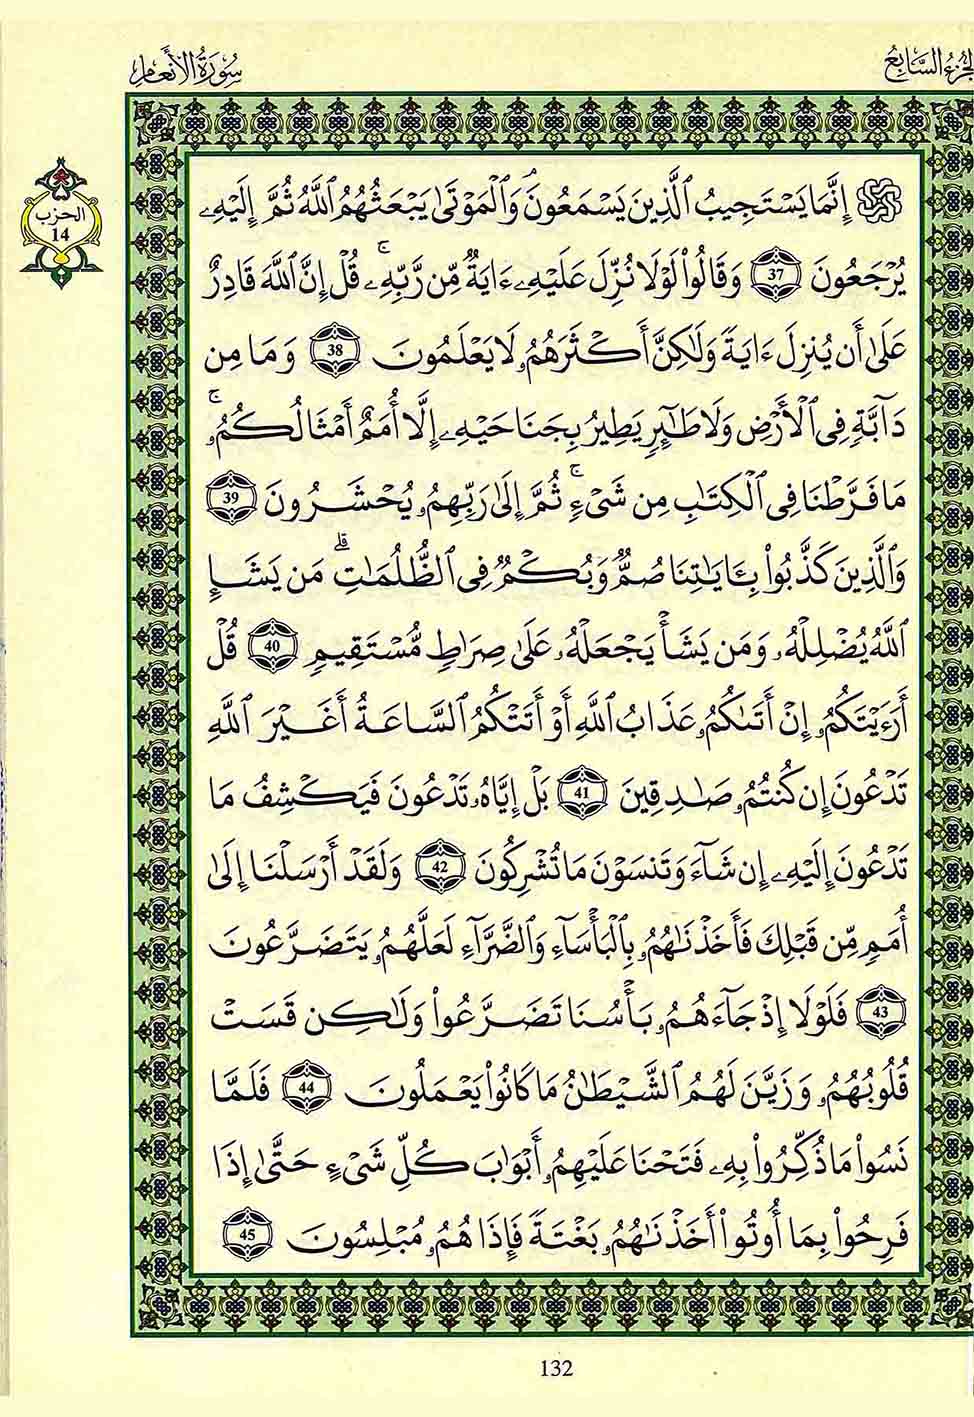 الجزء السابع
سُورَةُ الأَنْعَامِ
الحزب
14
۞ إِنَّمَا يَسْتَجِيبُ اُ۬لذِينَ يَسْمَعُونَ وَالْمَوْت۪ىٰ يَبْعَثُهُمُ اُ۬للَّهُ ثُمَّ إِلَيْهِۦ
يُرْجَعُونَ 37 وَقَالُواْ لَوْلَا نُزِّلَ عَلَيْهِۦ ءَايَةٌ مِّن رَّبِّهِۦۚ قُلْ إِنَّ اَ۬للَّهَ قَادِرٌ
عَلَىٰ أَن يُنزِلَ ءَايَةً وَلَٰكِنَّ أَكْثَرَهُمُۥ لَا يَعْلَمُونَ 38 وَمَا مِن
دَآبَّةٍ فِى اِ۬لْأَرْضِ وَلَا طَٰٓئِرٍ يَطِيرُ بِجَنَاحَيْهِۦ إِلَّا أُمَمٌ أَمْثَالُكُمُۥۚ
مَا فَرَّطْنَا فِى اِ۬لْكِتَٰبِ مِن شَىْءٍۚ ثُمَّ إِلَىٰ رَبِّهِمُۥ يُحْشَرُونَ 39
وَالَّذِينَ كَذَّبُواْ بِـَٔايَٰتِنَا صُمٌّ وَبُكْمٌ فِى اِ۬لظُّلُمَٰتِۗ مَن يَشَإِ
اِ۬للَّهُ يُضْلِلْهُۥ وَمَن يَشَأْ يَجْعَلْهُۥ عَلَىٰ صِرَاطٍ مُّسْتَقِيمٍ 40 قُلْ
أَرَءَيْتَكُمُۥ إِنْ أَتَىٰكُمُۥ عَذَابُ اُ۬للَّهِ أَوْ أَتَتْكُمُ اُ۬لسَّاعَةُ أَغَيْرَ اَ۬للَّهِ
تَدْعُونَ إِن كُنتُمُۥ صَٰدِقِينَ 41 بَلْ إِيَّاهُۥ تَدْعُونَ فَيَكْشِفُ مَا
تَدْعُونَ إِلَيْهِۦ إِن شَآءَ وَتَنسَوْنَ مَا تُشْرِكُونَ 42 وَلَقَدْ أَرْسَلْنَا إِلَىٰ
أُمَمٍ مِّن قَبْلِكَ فَأَخَذْنَٰهُمُۥ بِالْبَأْسَآءِ وَالضَّرَّآءِ لَعَلَّهُمُۥ يَتَضَرَّعُونَ
43 فَلَوْلَا إِذْ جَآءَهُمُۥ بَأْسُنَا تَضَرَّعُواْ وَلَٰكِن قَسَتْ
قُلُوبُهُمُۥ وَزَيَّنَ لَهُمُ اُ۬لشَّيْطَٰنُ مَا كَانُواْ يَعْمَلُونَ 44 فَلَمَّا
نَسُواْ مَا ذُكِّرُواْ بِهِۦ فَتَحْنَا عَلَيْهِمُۥ أَبْوَابَ كُلِّ شَىْءٍ حَتَّىٰ إِذَا
فَرِحُواْ بِمَا أُوتُواْ أَخَذْنَٰهُمُۥ بَغْتَةً فَإِذَا هُمُۥ مُبْلِسُونَ 45
132